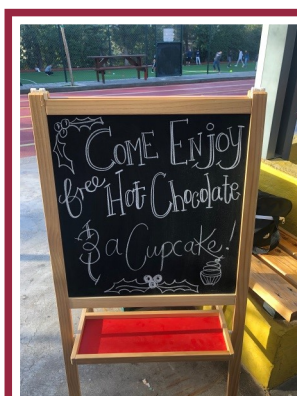 COME ENJOY
free Hot Chocolate
& a Cupcake!